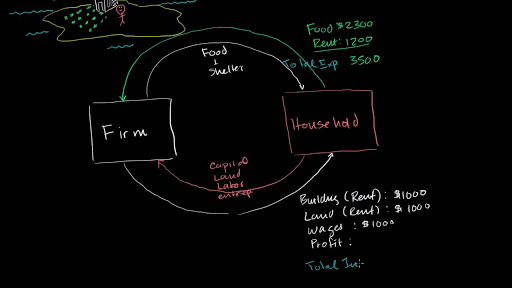 Food $2300
Rent: 1200
Total Exp 3500
Food
&
Shelter
Firm
Household
Capital
Land
Labor
entrep
Building (Rent): $1000
Land (Rent): $1000
Wages: $1000
Profit:
Total In